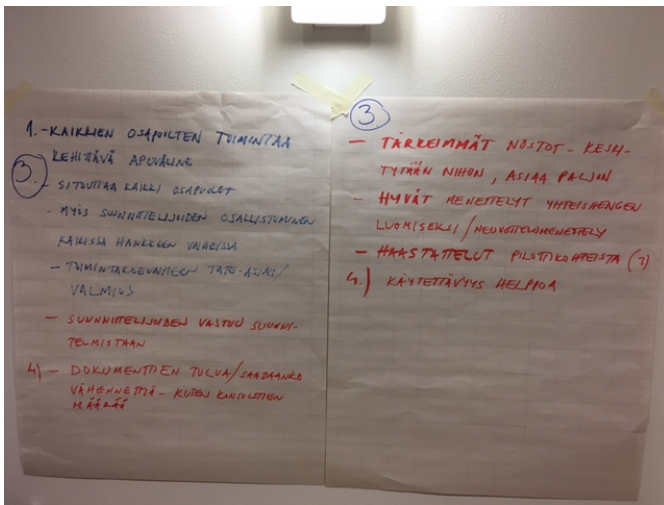 1. - KAIKKIEN OSAPUOLTEN TOIMINTAA
KEHITTÄVÄ APUVÄLINE
3. - SITOUTTAA KAIKKI OSAPUOLET
- MYÖS SUUNNITTELIJOIDEN OSALLISTUMINEN
KAIKISSA HANKKEEN VAIHEISSA
- TOIMINTAKUNTEEN TATE-ASIAT/
VALMIUS
- SUUNNITTELIJOIDEN VASTUU SUUNNI-
TELMISTAAN
4) - DOKUMENTTIEN TULVA/SAADAANKO
VÄHENNETTYÄ - KUTEN KANSIOITTEN
MÄÄRÄÄ
3
- TÄRKEIMMÄT NOSTOT - KESKI-
TYTÄÄN NIIHIN, ASIAA PALJON
- HYVÄT MENETTELYT YHTEISHENGEN
LUOMISEKSI/NEUVOTTELUMENETTELY
- HAASTATTELUT PILOTTIKOHTEISTA (?)
4.) KÄYTETTÄVYYS HELPPOA